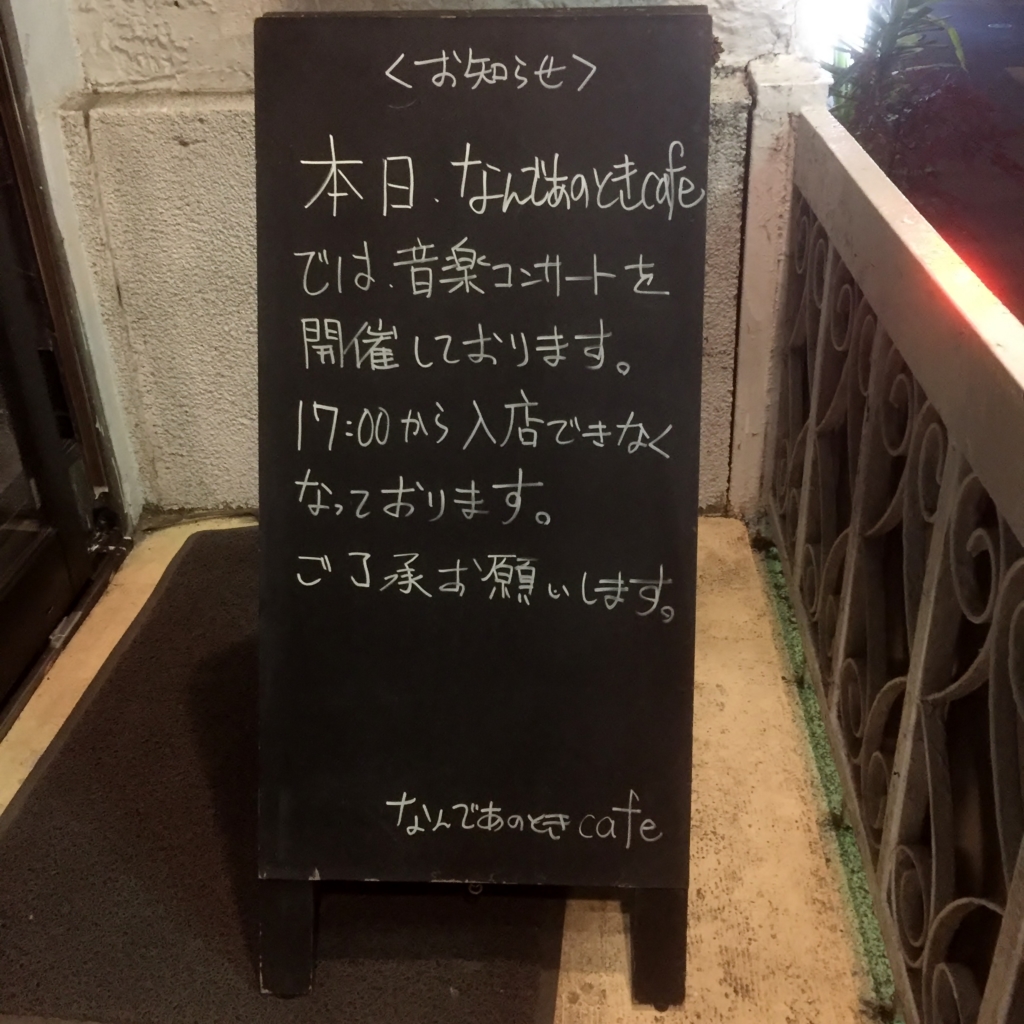 <お知らせ>
本日、なんであのときcafe
では、音楽コンサートを
開催しております。
17:00から入店できなく
なっております。
ご了承お願いします。
なんであのときcafe